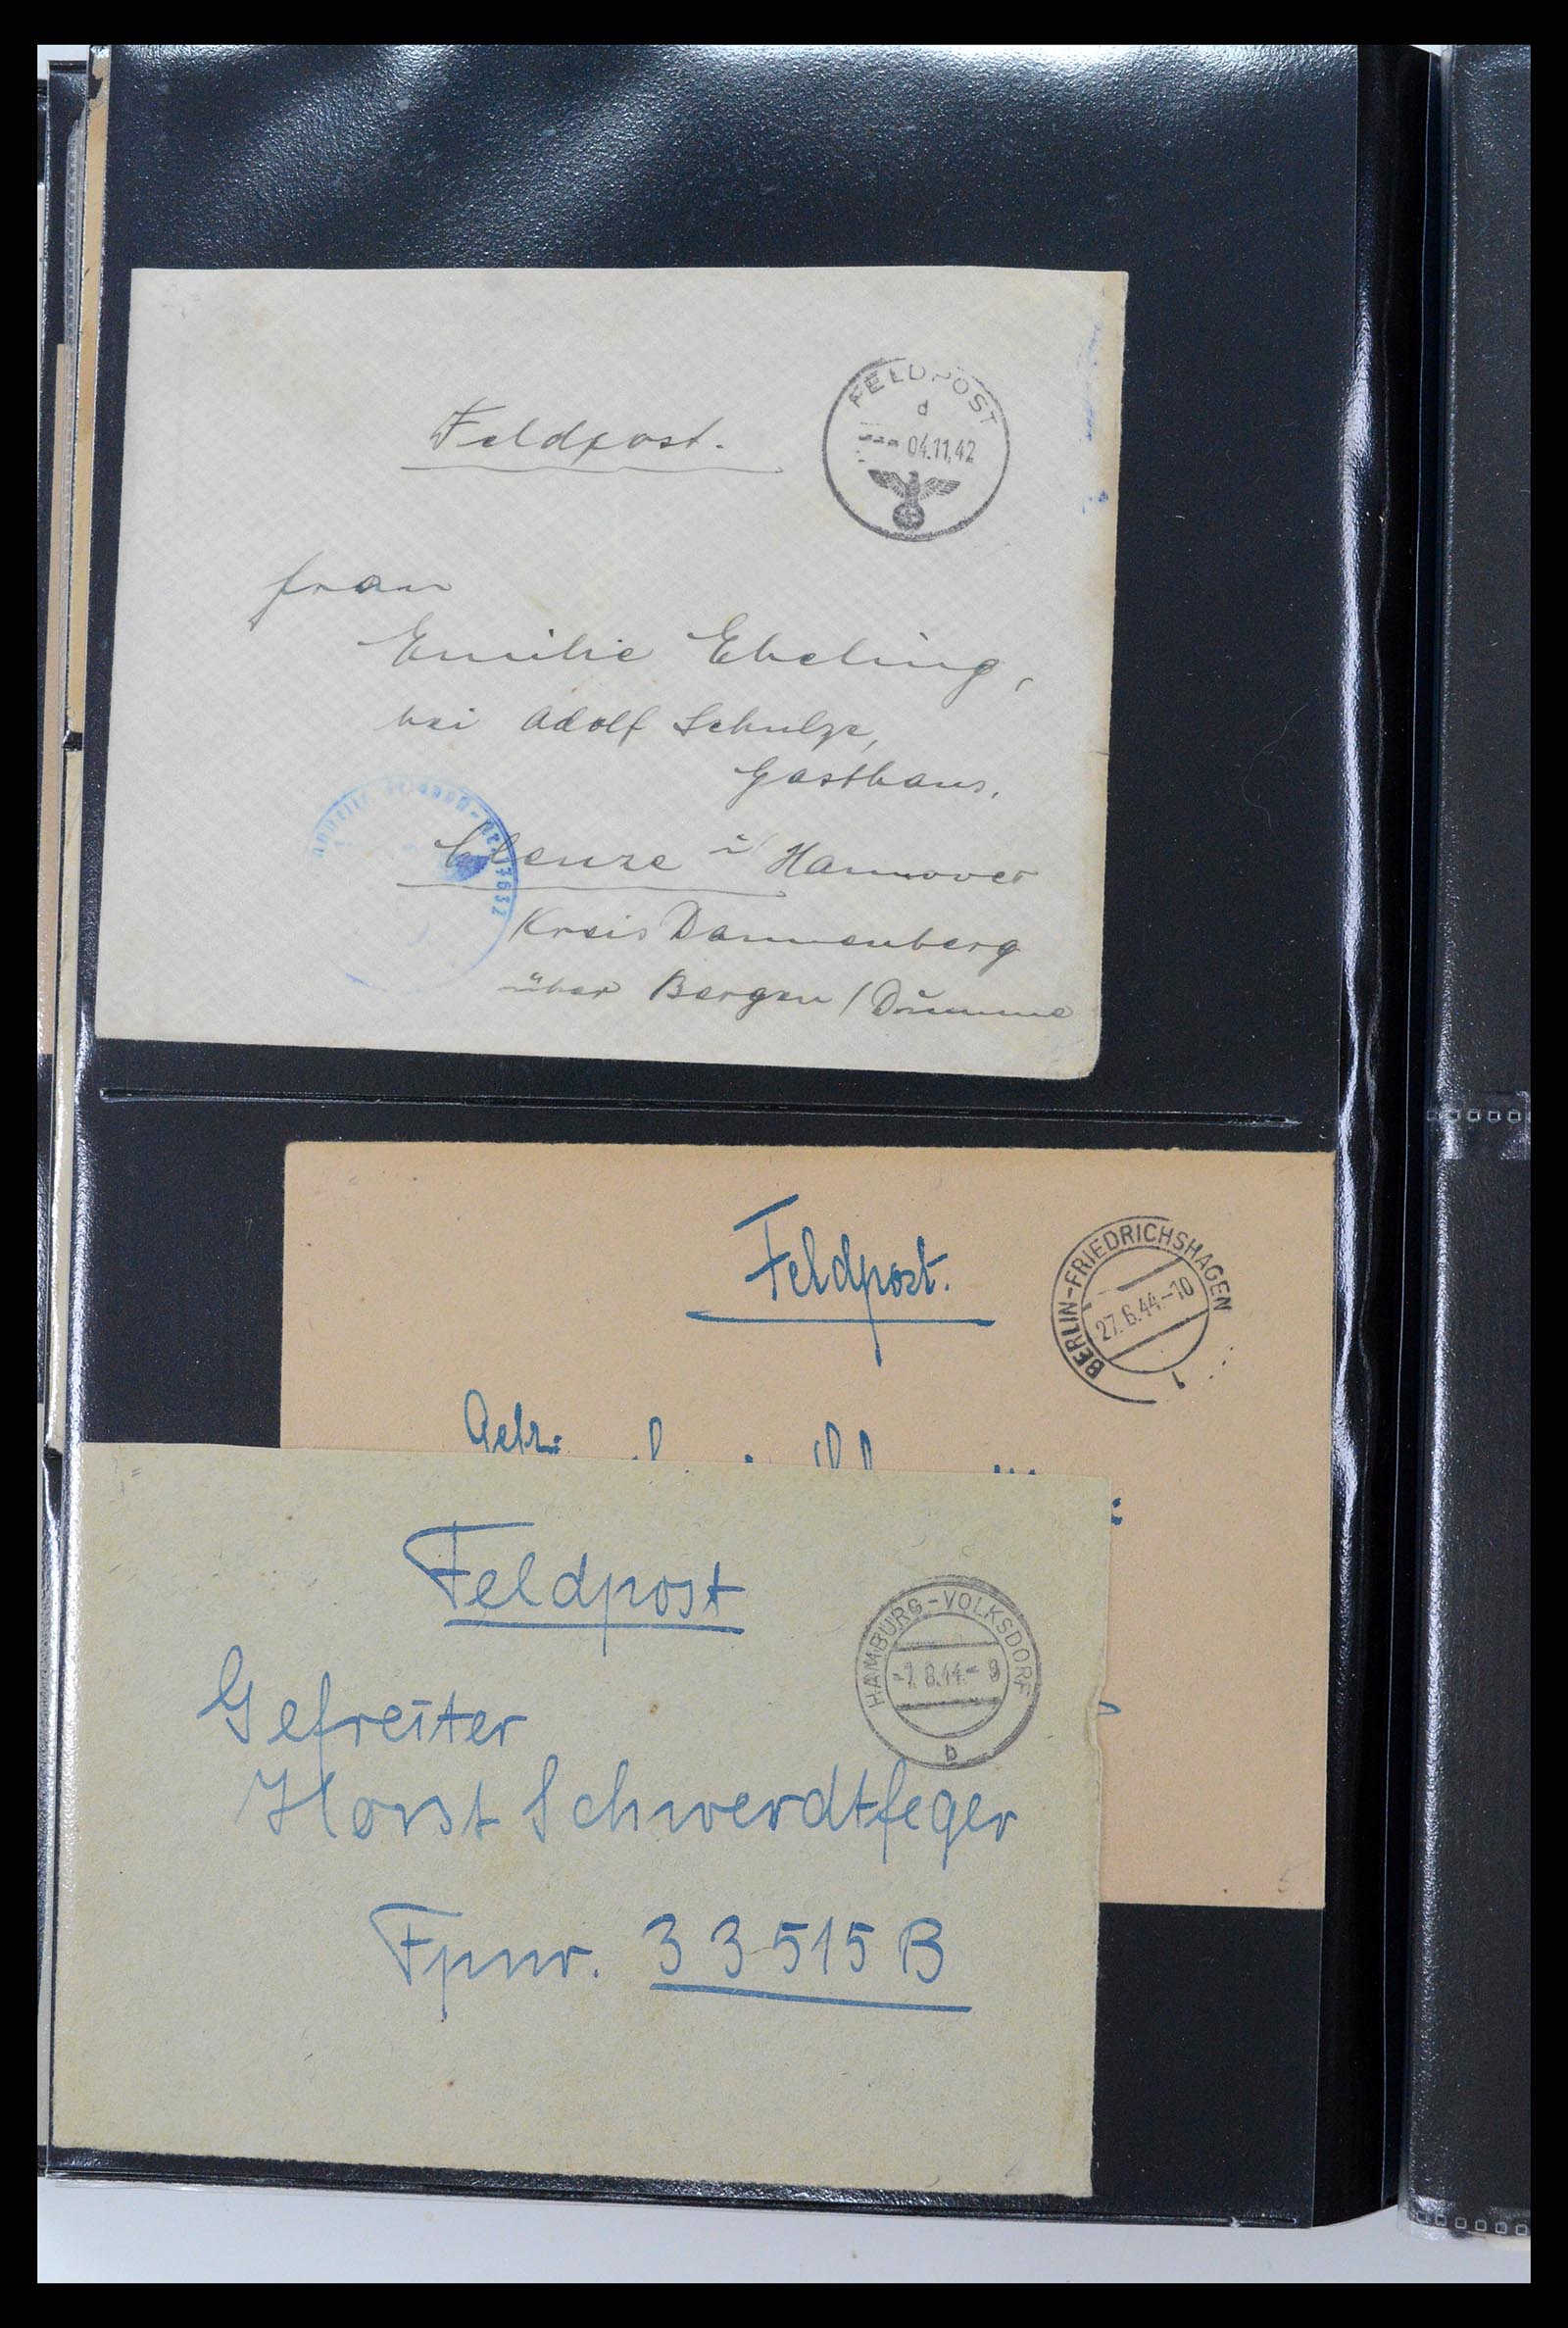 Feldpost.
FELDPOST
d
04.11.42
Frau
Emilie Ebeling,
bei Adolf Schulze,
Gasthaus.
Clenze i Hannover
17632
Kreis Dannenberg
über Bergen / Dumme
Feldpost.
BERLIN-FRIEDRICHSHAGEN
27.6.44.-10
1
Gefr.
Feldpost
HAMBURG-VOLKSDORF
-7.8.44.- 9
b
Gefreiter
Horst Schwerdtfeger
Fpnr. 33515B